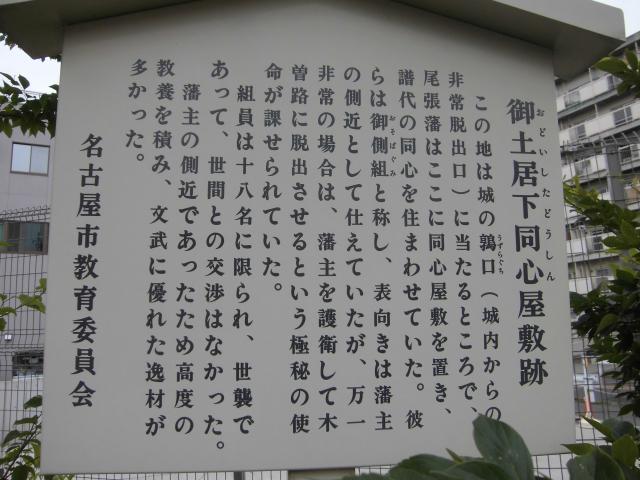 御土居下同心屋敷跡
おどいしたどうしん
この地は城の鶉口（城内からの
うずらぐち
非常脱出口）に当たるところで、
尾張藩はここに同心屋敷を置き、
譜代の同心を住まわせていた。彼
らは御側組と称し、表向きは藩主
おそばぐみ
の側近として仕えていたが、万一
非常の場合は、藩主を護衛して木
曽路に脱出させるという極秘の使
命が課せられていた。
組員は十八名に限られ、世襲で
あって、世間との交渉はなかった。
藩主の側近であったため高度の
教養を積み、文武に優れた逸材が
多かった。
名古屋市教育委員会